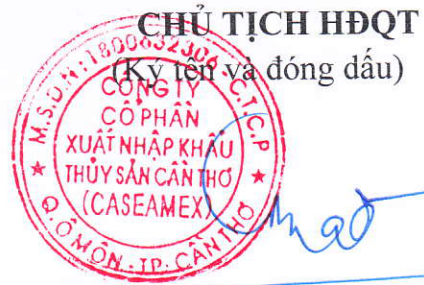 CHỦ TỊCH HĐQT
(Ký tên và đóng dấu)
M.S.D.N:1800632306-C.T.C.P
CÔNG TY
CỔ PHẦN
XUẤT NHẬP KHẨU
THỦY SẢN CẦN THƠ
(CASEAMEX)
Q.Ô MÔN-TP. CẦN THƠ